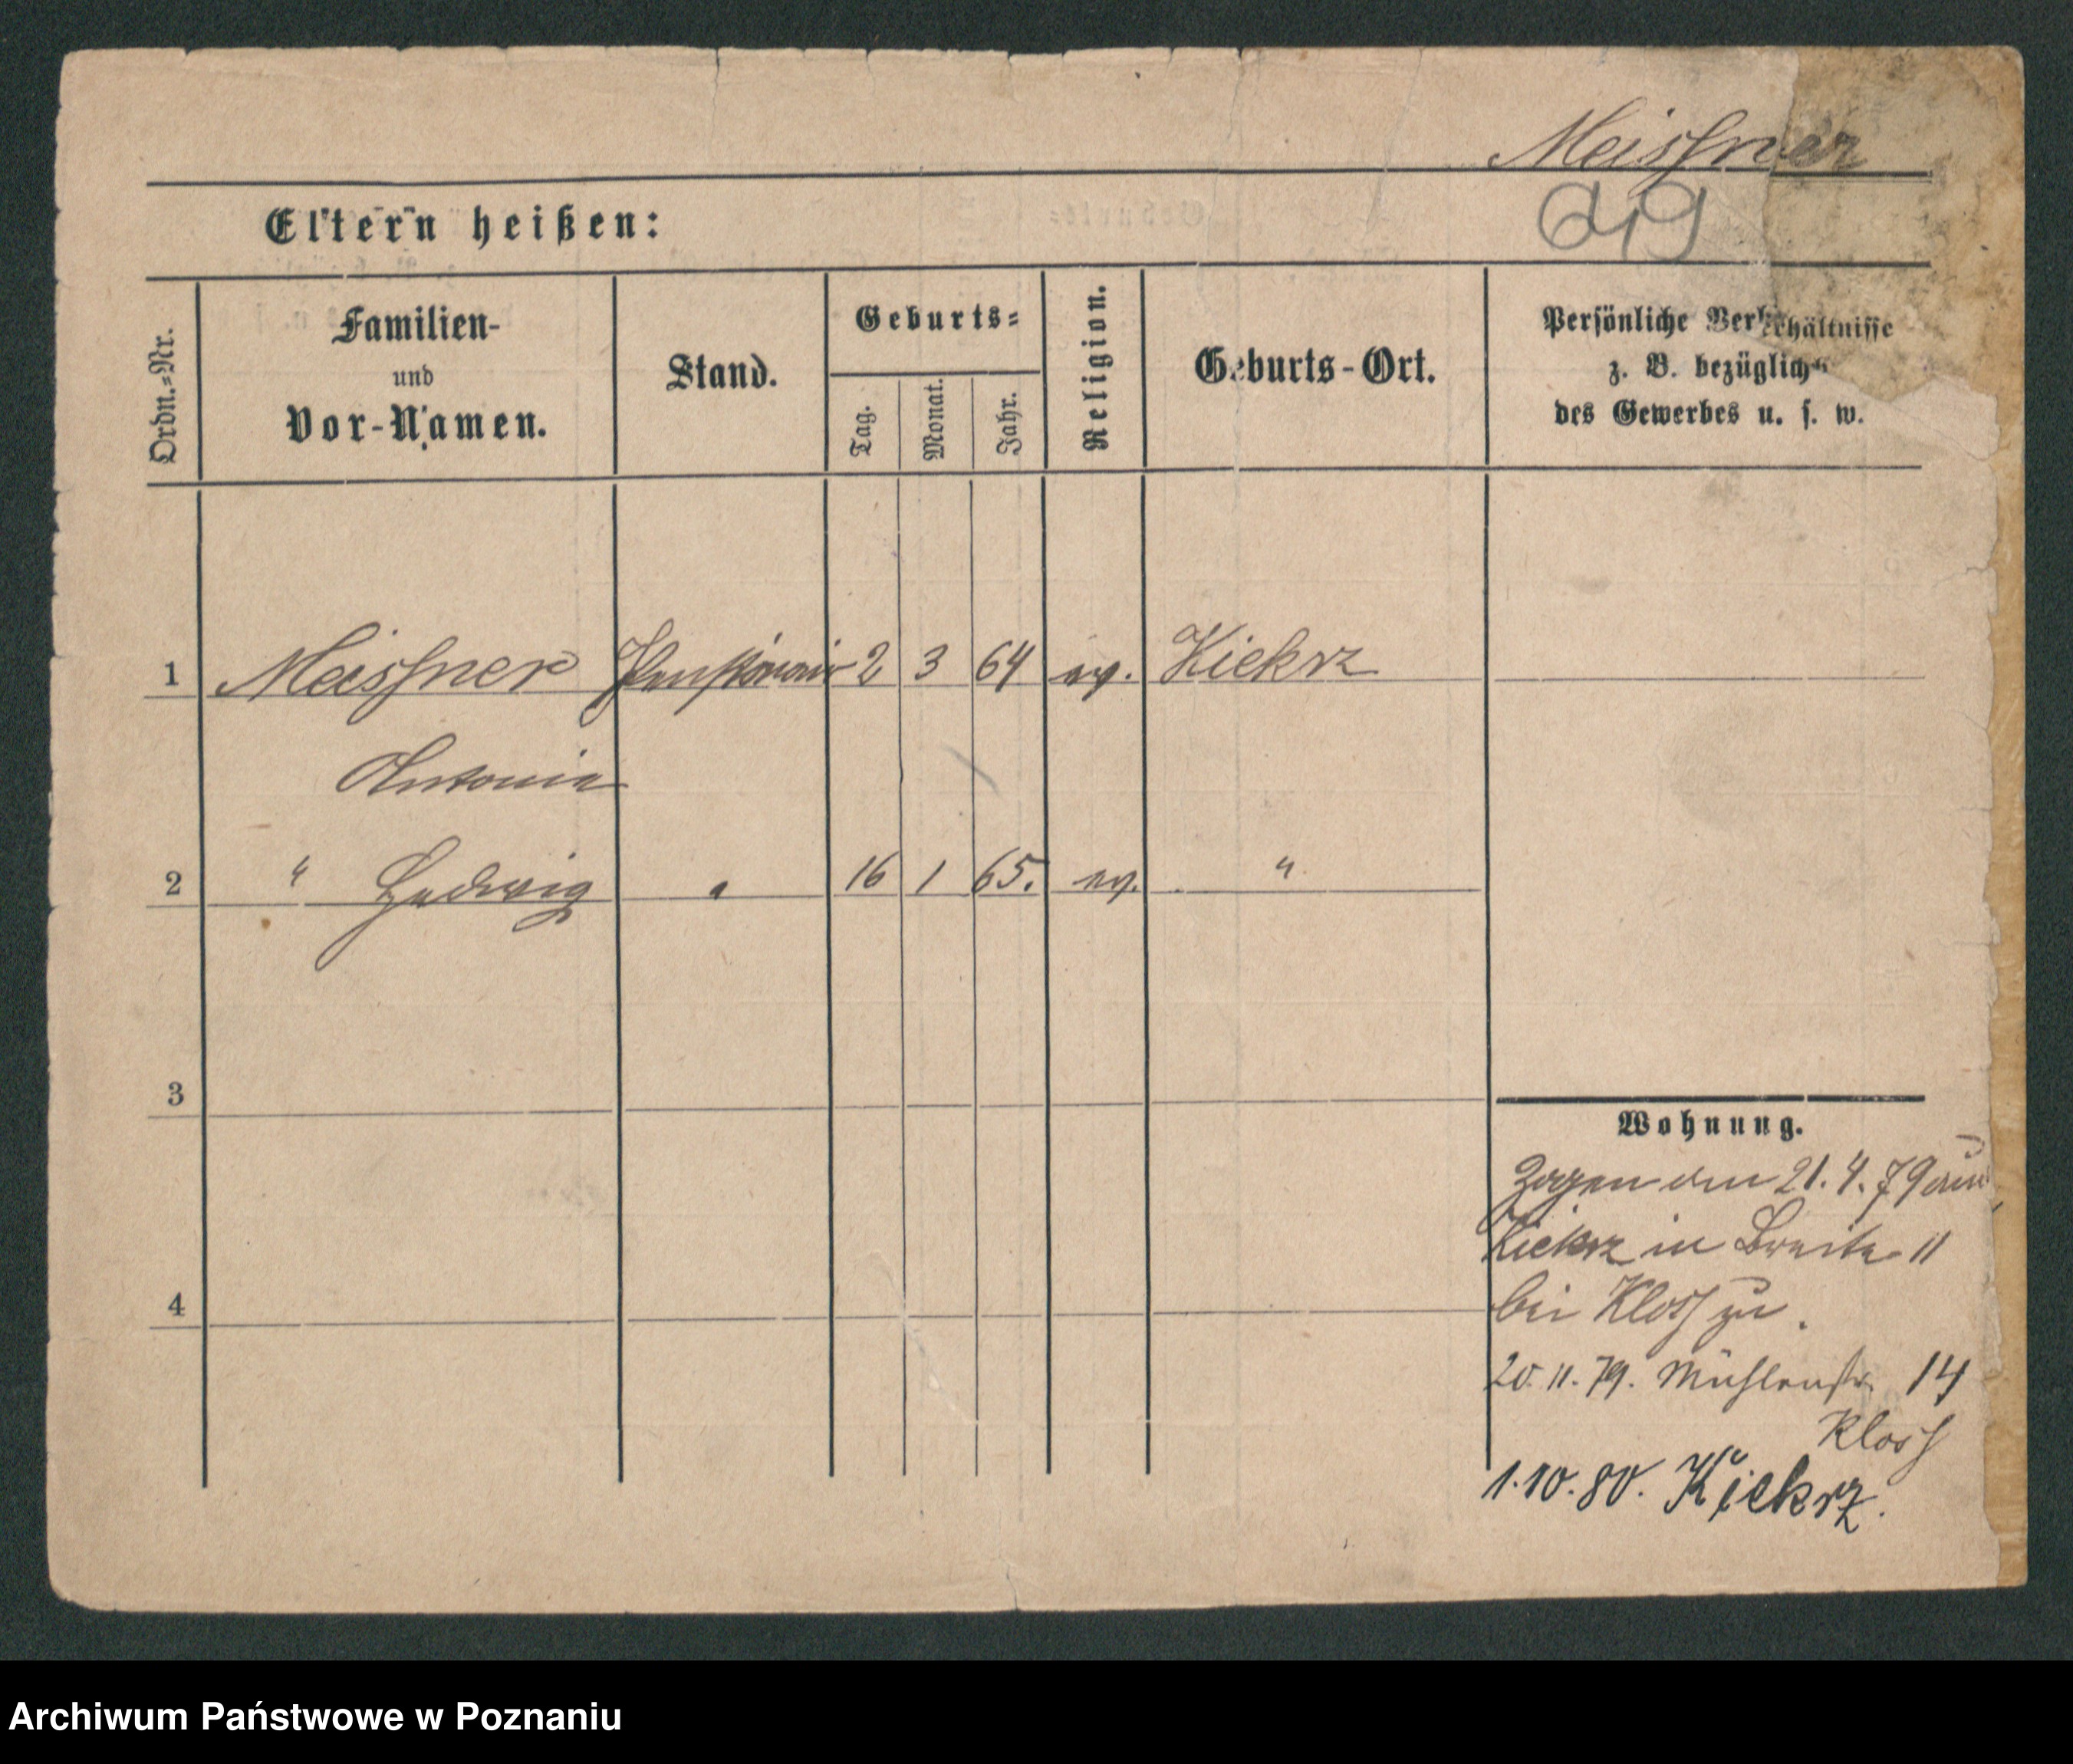 Meissner
Eltern heißen:
Ordn.-Nr.
Familien-
und
Vor-Namen.
Stand.
Geburts-
Tag.
Monat.
Jahr.
Religion.
Geburts-Ort.
Persönliche Verhältnisse
z. B. bezüglich
des Gewerbes u. s. w.
1 Meissner Pensionair 2 3 64 ev. Kiekrz
Antonie
2 " Ludwig " 16 1 65. ev. "
3
4
Wohnung.
Zogen am 21.4.79 aus
Kiekrz in Breite 11
bei Kloss zu.
20.11.79. Mühlenstr. 14
Kloss
1.10.80. Kiekrz.
Archiwum Państwowe w Poznaniu